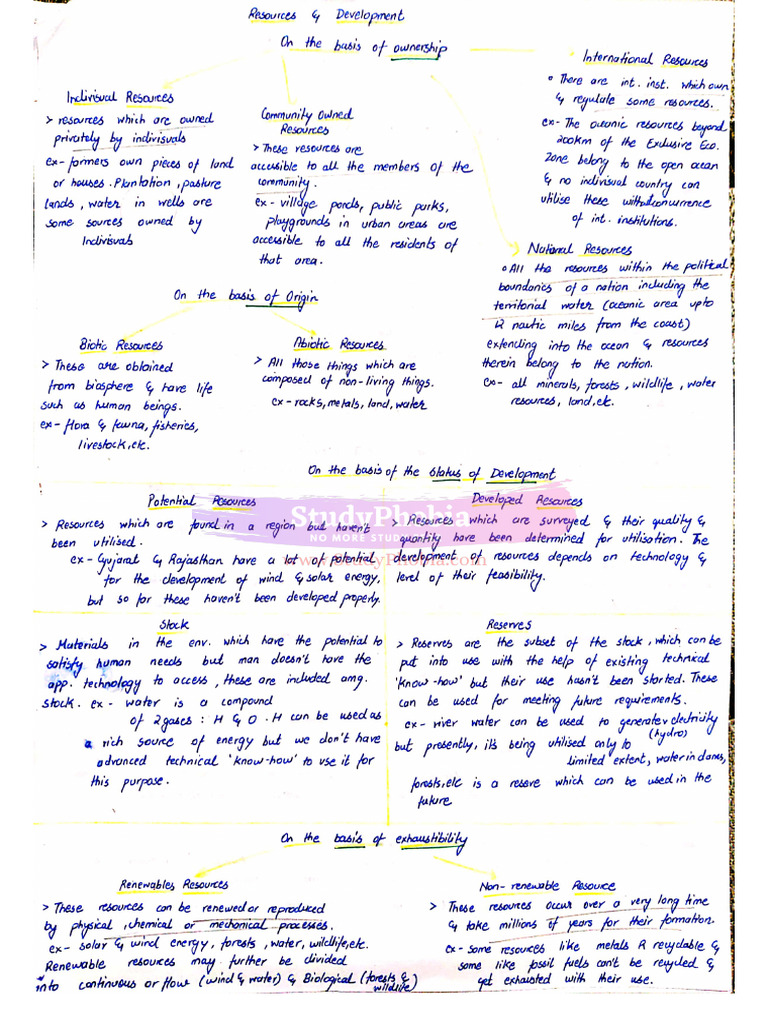 Resources & Development
On the basis of ownership
Indivisual Resources
> resources which are owned
privately by indivisuals
ex- farmers own pieces of land
or houses. Plantation, pasture
lands, water in wells are
some sources owned by
Indivisuals
Community Owned
Resources
> These resources are
accessible to all the members of the
community.
ex- village ponds, public parks,
playgrounds in urban areas are
accessible to all the residents of
that area.
International Resources
° There are int. inst. which own
& regulate some resources.
ex- The oceanic resources beyond
200km of the Exclusive Eco.
Zone belong to the open ocean
& no indivisual country can
utilise these without concurrence
of int. institutions.
National Resources
° All the resources within the political
boundaries of a nation including the
territorial water (oceanic area upto
12 nautic miles from the coast)
extending into the ocean & resources
therein belong to the nation.
ex- all minerals, forests, wildlife, water
resources, land, etc.
On the basis of Origin
Biotic Resources
> These are obtained
from biosphere & have life
such as human beings.
ex- flora & fauna, fisheries,
livestock, etc.
Abiotic Resources
> All those things which are
composed of non-living things.
ex- rocks, metals, land, water
On the basis of the Status of Development
Potential Resources
> Resources which are found in a region but haven't
been utilised.
ex- Gujarat & Rajasthan have a lot of potential
for the development of wind & solar energy,
but so far these haven't been developed properly.
Developed Resources
> Resources which are surveyed & their quality &
quantity have been determined for utilisation. The
development of resources depends on technology &
level of their feasibility.
StudyPhobia
NO MORE STUD
www.StudyPhobia.com
Stock
> Materials in the env. which have the potential to
satisfy human needs but man doesn't have the
app. technology to access, these are included amg.
stock. ex- water is a compound
of 2 gases : H & O. H can be used as
a rich source of energy but we don't have
advanced technical 'know-how' to use it for
this purpose.
Reserves
> Reserves are the subset of the stock, which can be
put into use with the help of existing technical
'know-how' but their use hasn't been started. These
can be used for meeting future requirements.
ex- river water can be used to generate electricity
(hydro)
but presently, it's being utilised only to
limited extent, water in dams,
forests, etc is a reserve which can be used in the
future
On the basis of exhaustibility
Renewables Resources
> These resources can be renewed or reproduced
by physical, chemical or mechanical processes.
ex- solar & wind energy, forests, water, wildlife, etc.
Renewable resources may further be divided
into continuous or flow (wind & water) & Biological (forests &
wildlife)
Non-renewable Resource
> These resources occur over a very long time
& take millions of years for their formation.
ex- some resources like metals R recyclable &
some like fossil fuels can't be recycled &
get exhausted with their use.